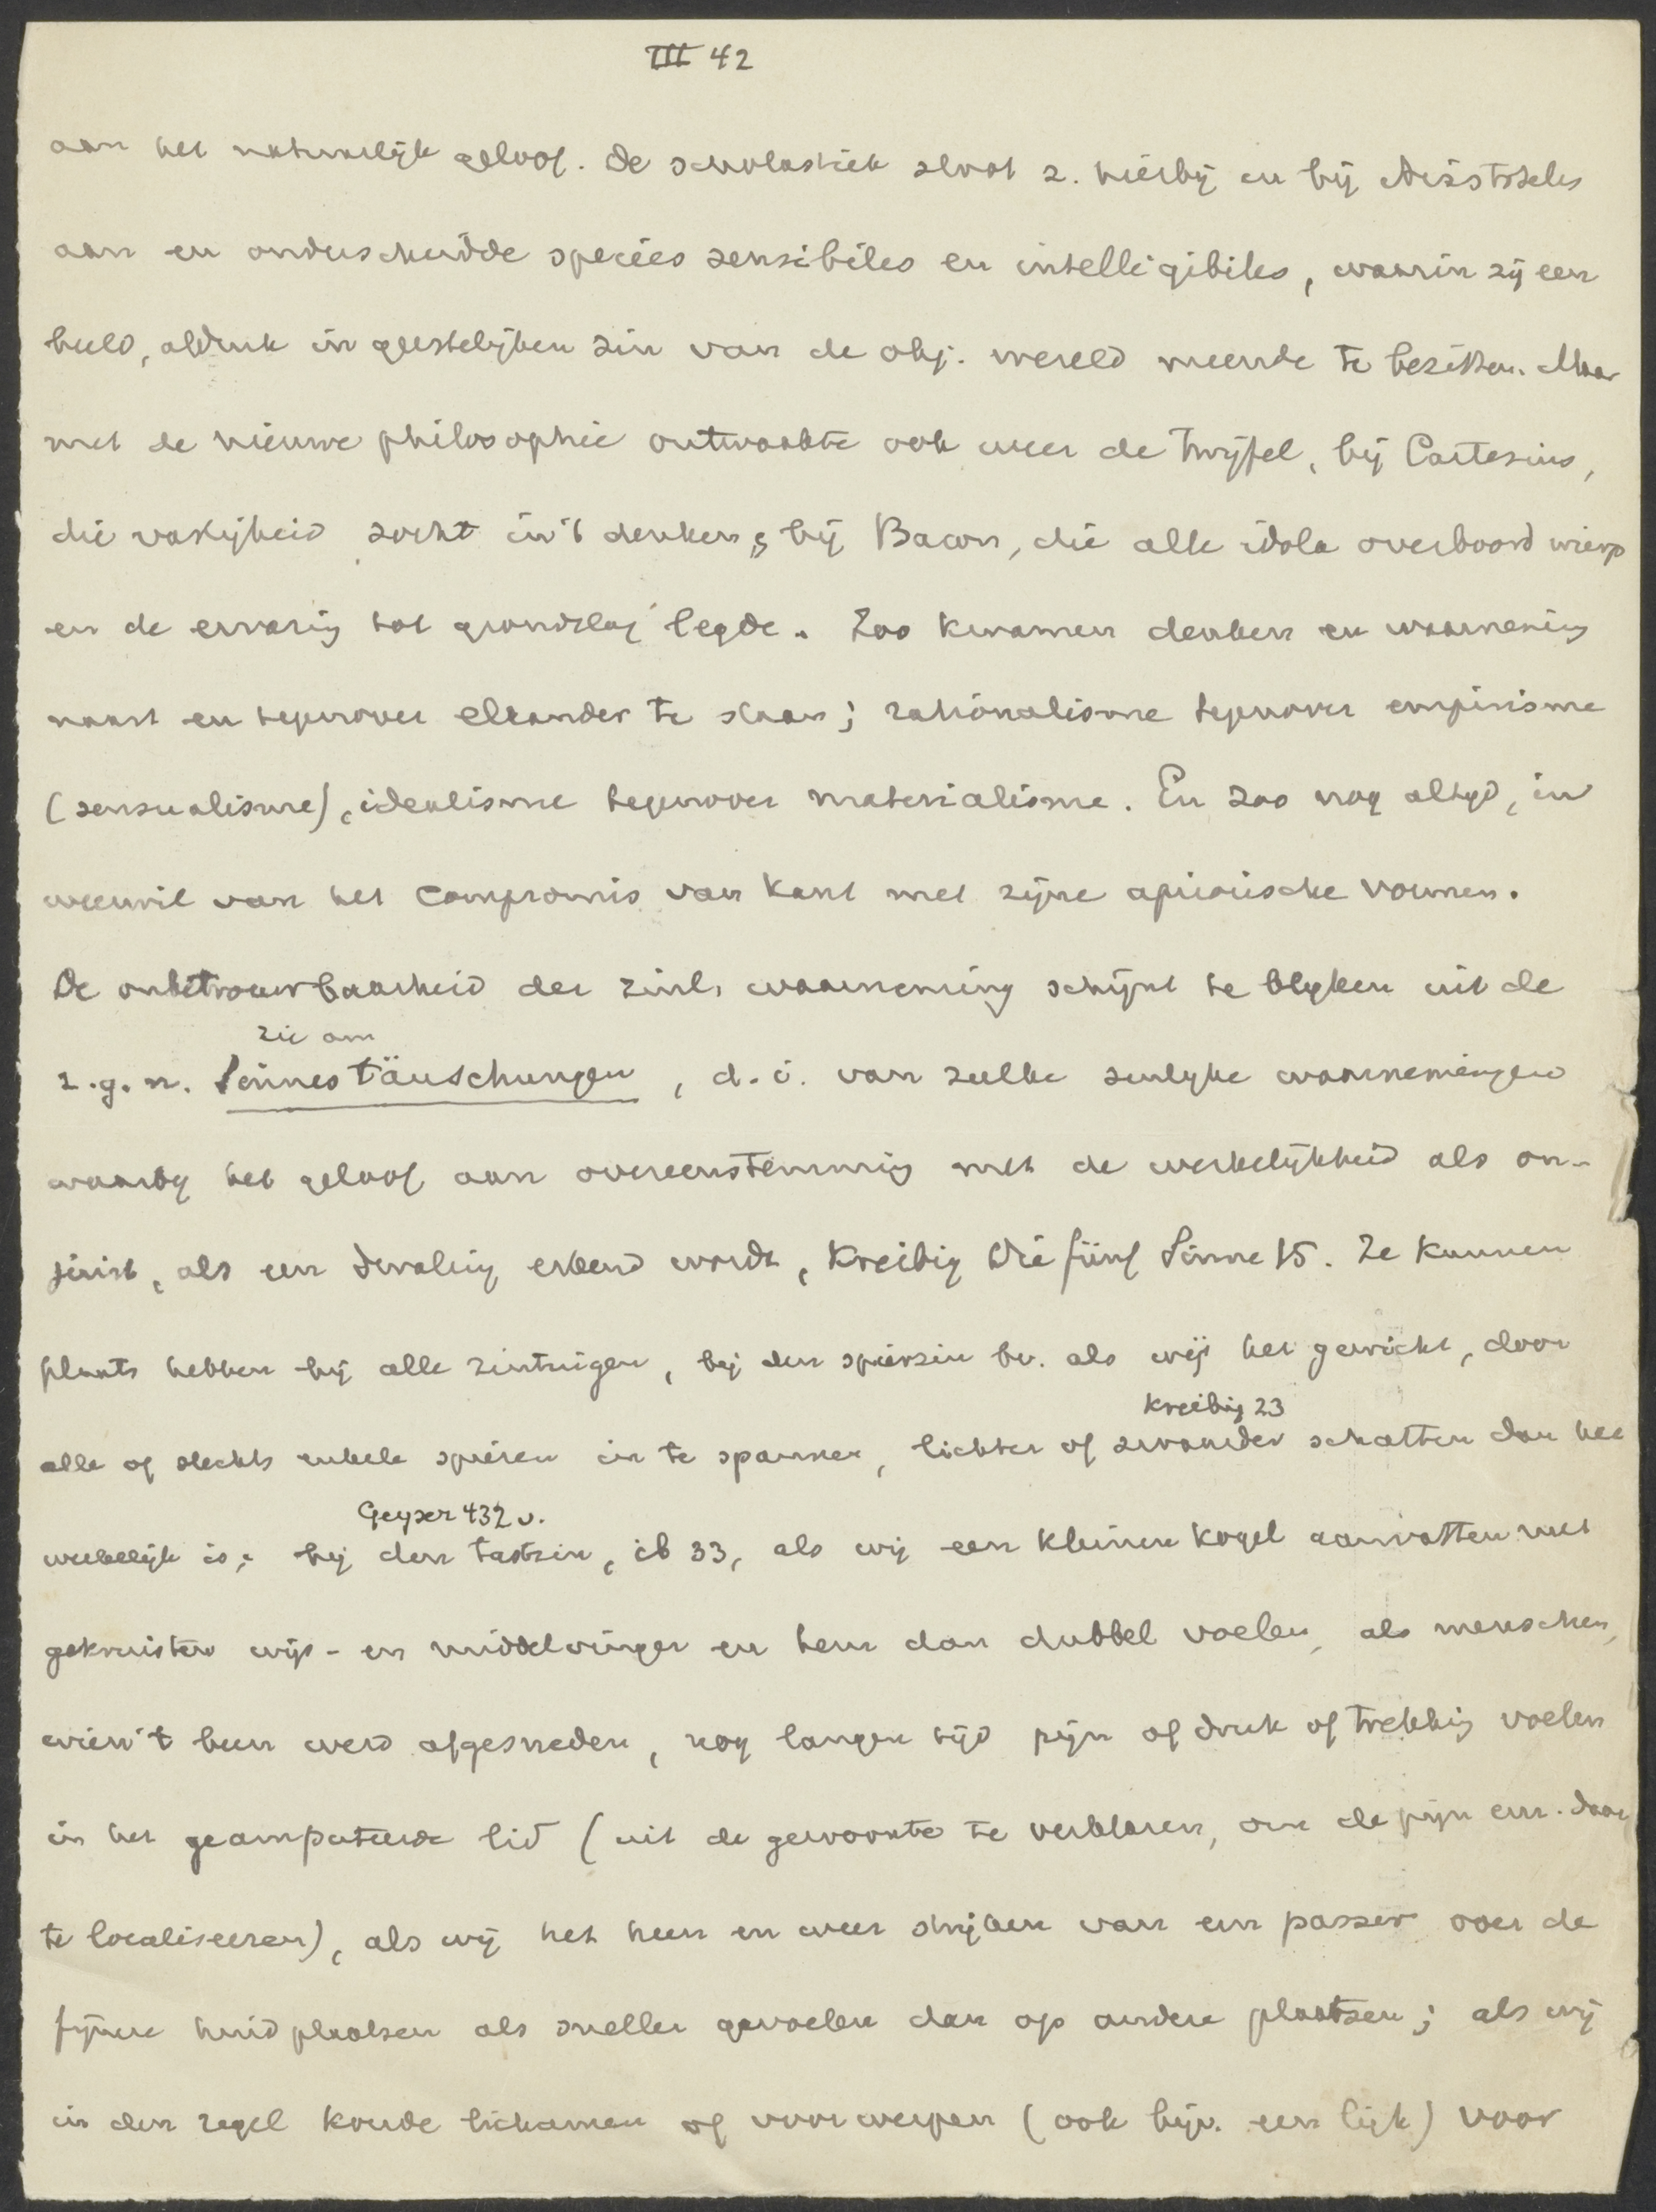 III 42
aan het natuurlijk geloof. De scholastiek sloot z. hierbij en bij Aristoteles
aan en onderscheidde species sensibiles en intelligibiles, waarin zij een
beeld, afdruk in geestelijken zin van de obj. wereld meende te bezitten. Maar
met de nieuwe philosophie ontwaakte ook weer de twijfel, bij Cartesius,
die vastigheid zocht in 't denken, bij Bacon, die alle idola overboord wierp
en de ervaring tot grondslag legde. Zoo kwamen denken en waarneming
naast en tegenover elkander te staan; rationalisme tegenover empirisme
(sensualisme), idealisme tegenover materialisme. En zoo nog altyd, in
weerwil van het compromis van Kant met zijne apriorische vormen.
De onbetrouwbaarheid der zinl. waarneming schijnt te blyken uit de
zie am
z.g.n. Sinnestäuschungen, d.i. van zulke zinlyke waarnemingen
waarby het geloof aan overeenstemming met de werkelijkheid als on-
juist, als een dwaling erkend wordt, Kreibig Die fünf Sinne 15. Ze kunnen
plaats hebben bij alle zintuigen, bij den spierzin bv. als wij het gewicht, door
Kreibig 23
alle of slechts enkele spieren in te spannen, lichter of zwaarder schatten dan het
Geyser 432 v.
werkelijk is; bij den tastzin, ib 33, als wij een kleinen kogel aanvatten met
gekruisten wijs- en middelvinger en hem dan dubbel voelen, als menschen,
wien 't been werd afgesneden, nog langen tijd pijn of druk of trekking voelen
in het geamputeerde lid (uit de gewoonte te verklaren, om de pijn enz. daar
te localiseeren), als wij het heen en weer strijken van een passer over de
fijnere huidplaatsen als sneller gevoelen dan op andere plaatsen; als wij
in den regel koude lichamen of voorwerpen (ook bijv. een lijk) voor